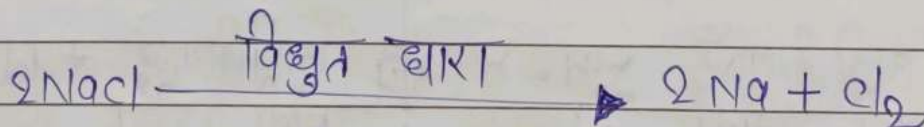 2NaCl विधुत धारा 2Na + Cl2